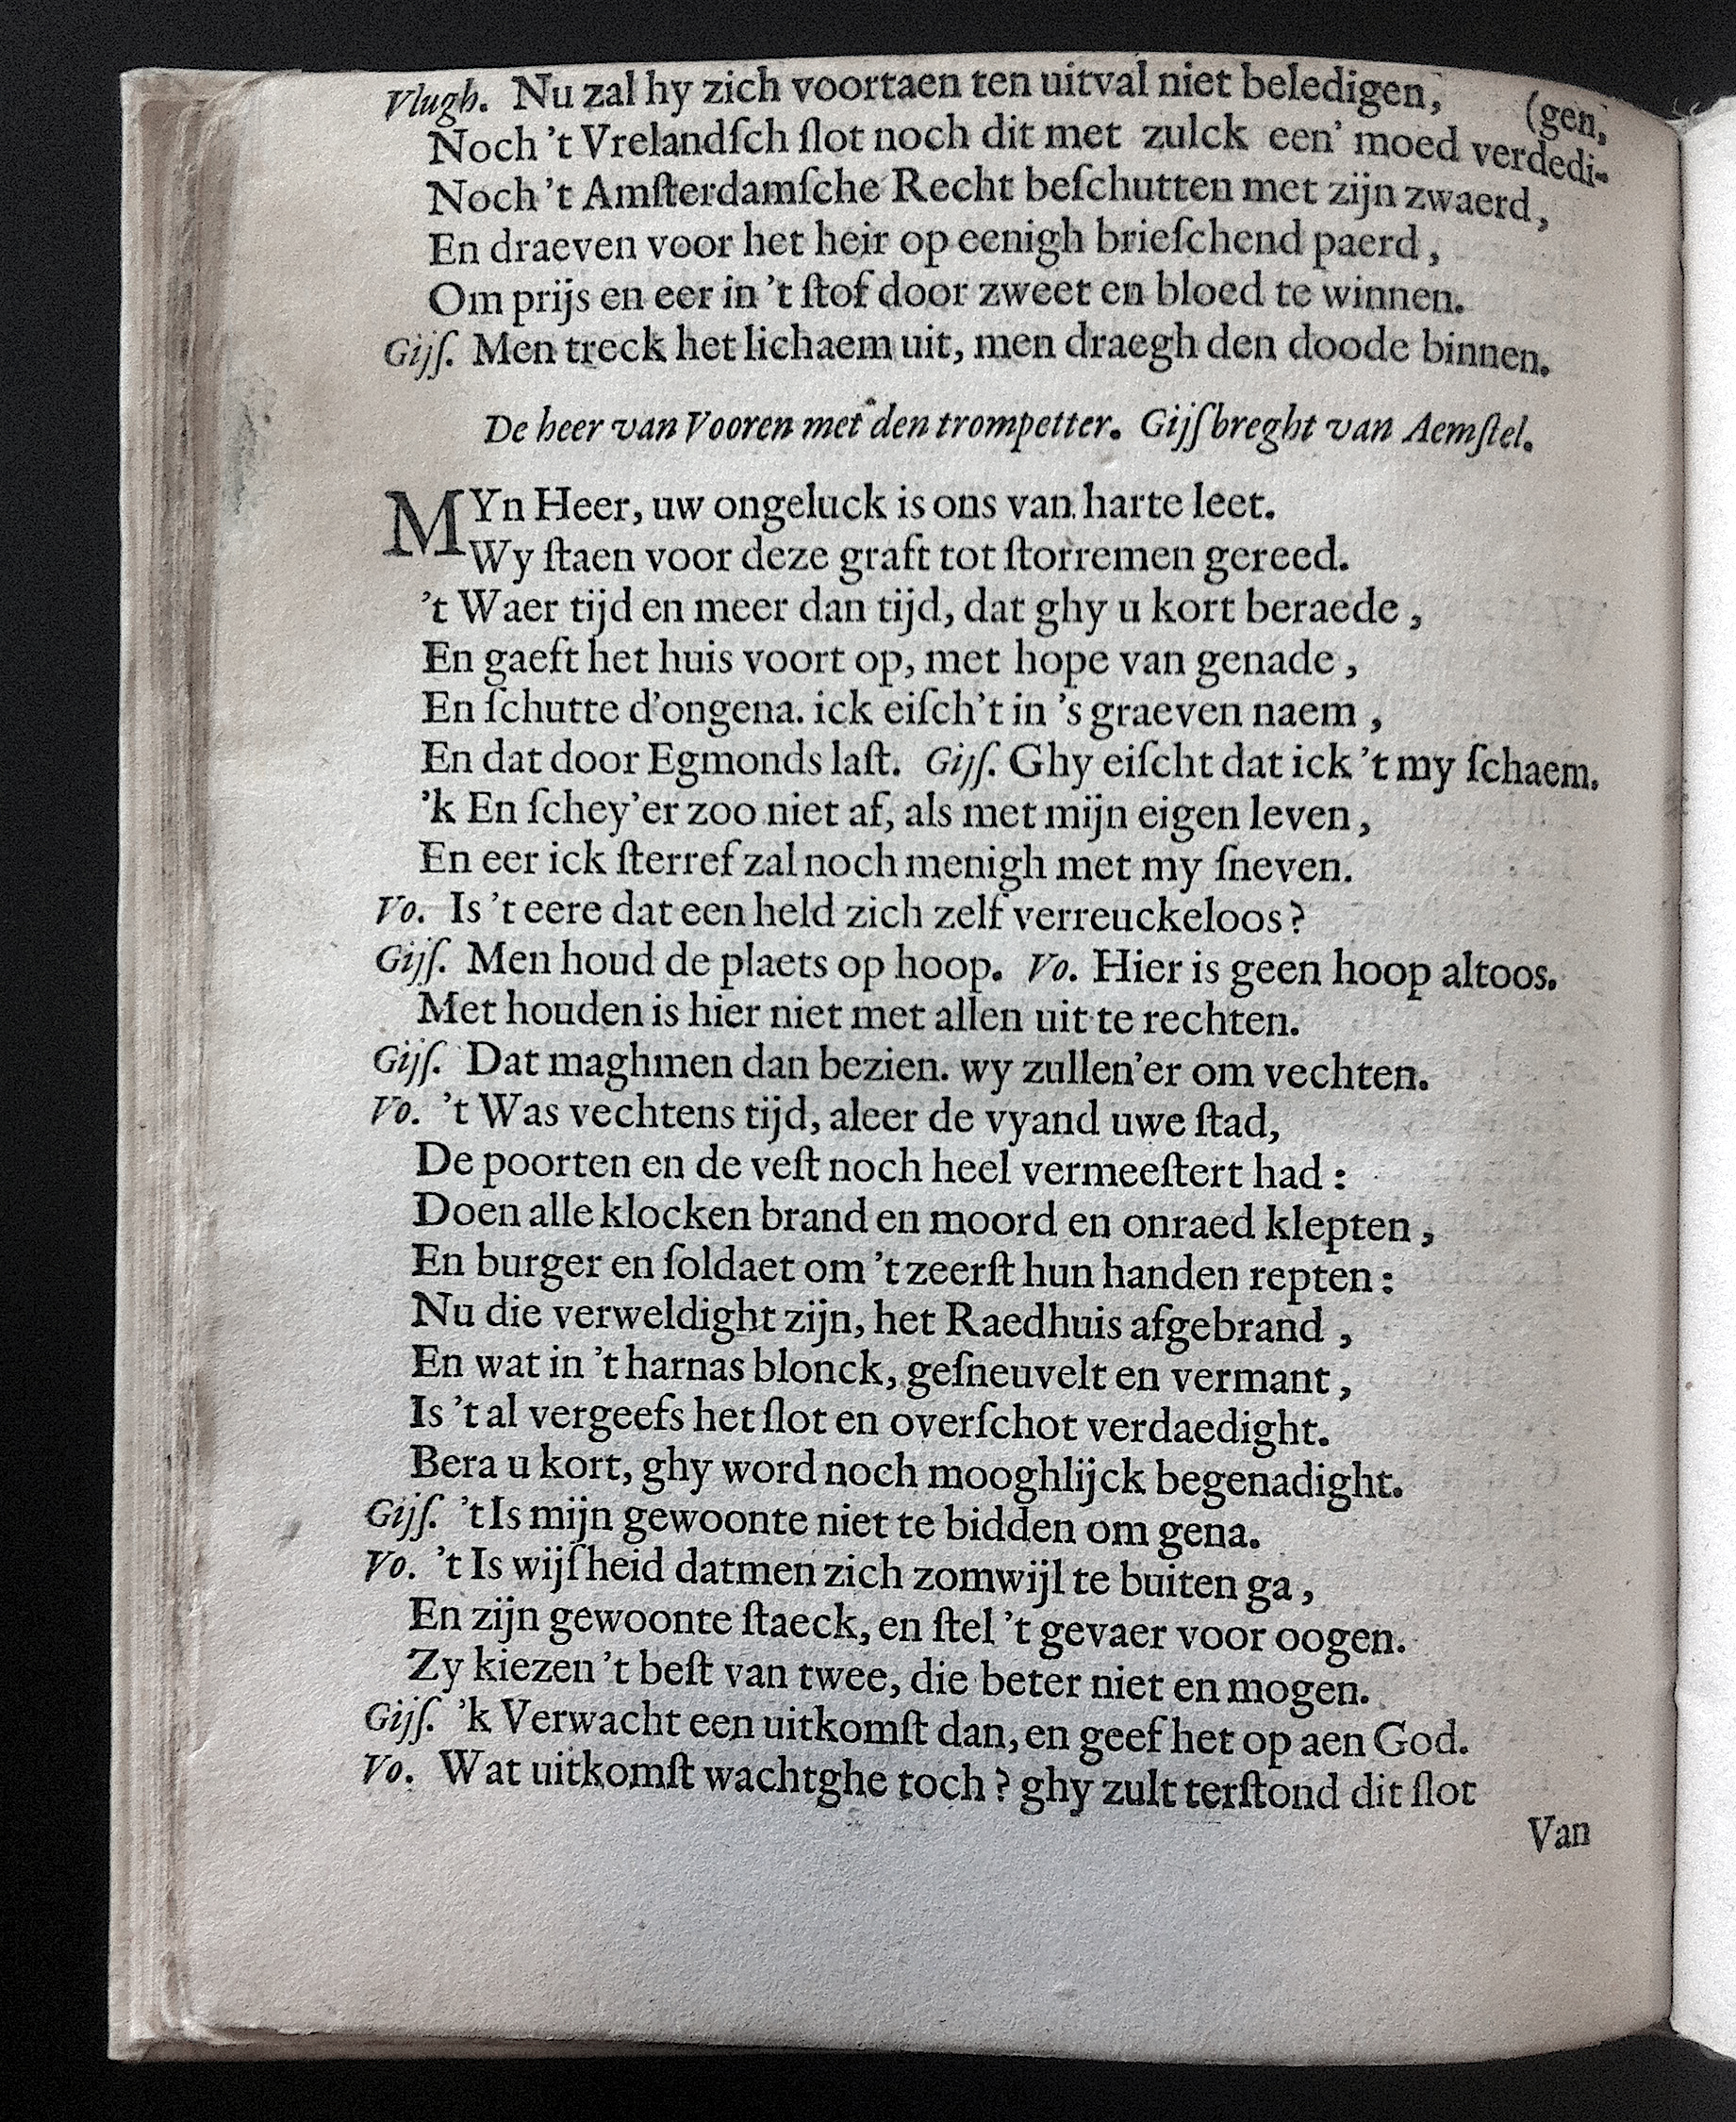 Vlugh. Nu zal hy zich voortaen ten uitval niet beledigen,
(gen,
Noch 't Vrelandſch ſlot noch dit met zulck een' moed verdedi-
Noch 't Amſterdamſche Recht beſchutten met zijn zwaerd,
En draeven voor het heir op eenigh brieſchend paerd,
Om prijs en eer in 't ſtof door zweet en bloed te winnen.
Gijſ. Men treck het lichaem uit, men draegh den doode binnen.
De heer van Vooren met den trompetter. Gijſbreght van Aemſtel.
MYn Heer, uw ongeluck is ons van harte leet.
Wy ſtaen voor deze graft tot ſtorremen gereed.
't Waer tijd en meer dan tijd, dat ghy u kort beraede,
En gaeft het huis voort op, met hope van genade,
En ſchutte d'ongena. ick eiſch't in 's graeven naem,
En dat door Egmonds laſt. Gijſ. Ghy eiſcht dat ick 't my ſchaem.
'k En ſchey'er zoo niet af, als met mijn eigen leven,
En eer ick ſterref zal noch menigh met my ſneven.
Vo. Is 't eere dat een held zich zelf verreuckeloos?
Gijſ. Men houd de plaets op hoop. Vo. Hier is geen hoop altoos.
Met houden is hier niet met allen uit te rechten.
Gijſ. Dat maghmen dan bezien. wy zullen'er om vechten.
Vo. 't Was vechtens tijd, aleer de vyand uwe ſtad,
De poorten en de veſt noch heel vermeeſtert had:
Doen alle klocken brand en moord en onraed klepten,
En burger en ſoldaet om 't zeerſt hun handen repten:
Nu die verweldight zijn, het Raedhuis afgebrand,
En wat in 't harnas blonck, geſneuvelt en vermant,
Is 't al vergeefs het ſlot en overſchot verdaedight.
Bera u kort, ghy word noch mooghlijck begenadight.
Gijſ. 't Is mijn gewoonte niet te bidden om gena.
Vo. 't Is wijſheid datmen zich zomwijl te buiten ga,
En zijn gewoonte ſtaeck, en ſtel 't gevaer voor oogen.
Zy kiezen 't beſt van twee, die beter niet en mogen.
Gijſ. 'k Verwacht een uitkomſt dan, en geef het op aen God.
Vo. Wat uitkomſt wachtghe toch? ghy zult terſtond dit ſlot
Van